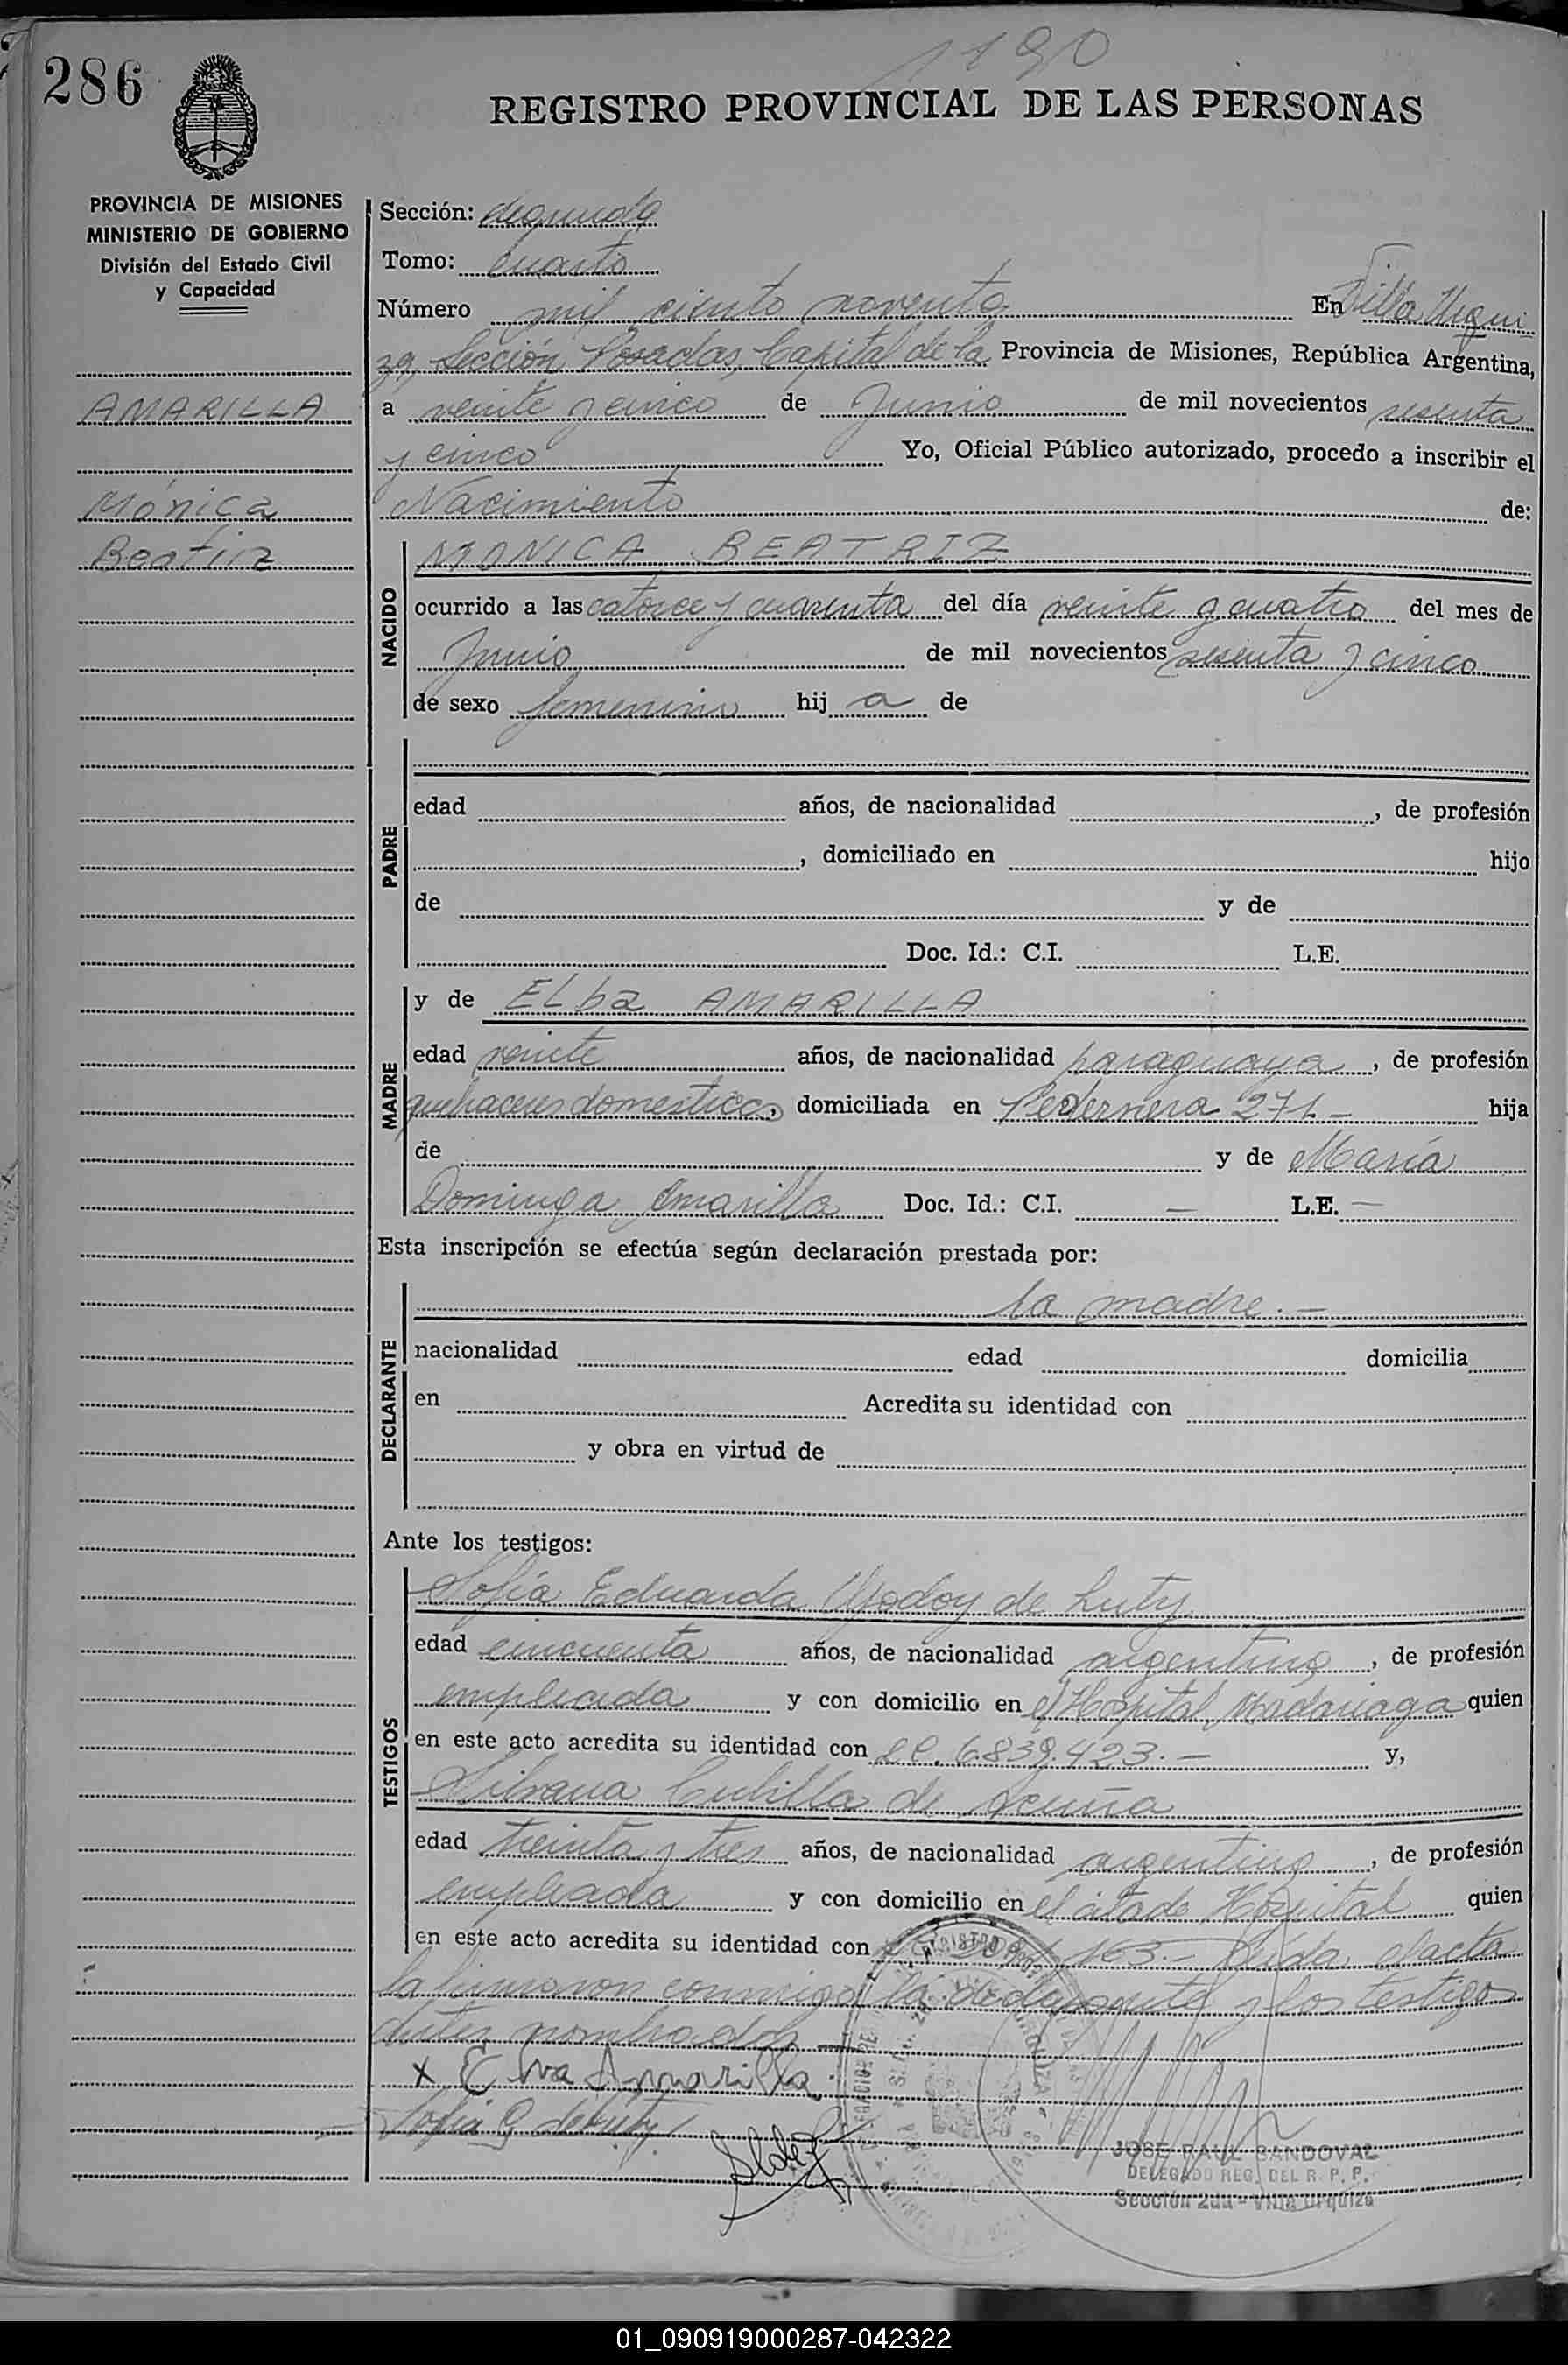 1190
286
REGISTRO PROVINCIAL DE LAS PERSONAS
PROVINCIA DE MISIONES
MINISTERIO DE GOBIERNO
División del Estado Civil
y Capacidad
AMARILLA
Mónica
Beatriz
Sección: segunda
Tomo: cuarto
Número mil ciento noventa En Villa Urqui
za, Sección Posadas, Capital de la Provincia de Misiones, República Argentina,
a veinte y cinco de Junio de mil novecientos sesenta
y cinco Yo, Oficial Público autorizado, procedo a inscribir el
Nacimiento de:
NACIDO
MONICA BEATRIZ
ocurrido a las catorce y cuarenta del día veinte y cuatro del mes de
Junio de mil novecientos sesenta y cinco
de sexo femenino hij a de
PADRE
edad años, de nacionalidad , de profesión
, domiciliado en hijo
de y de
Doc. Id.: C.I. L.E.
MADRE
y de ELba AMARILLA
edad veinte años, de nacionalidad paraguaya, de profesión
quehaceres domesticos, domiciliada en Pedernera 271.- hija
de y de María
Dominga Amarilla Doc. Id.: C.I. — L.E. —
Esta inscripción se efectúa según declaración prestada por:
DECLARANTE
la madre.-
nacionalidad edad domicilia
en Acredita su identidad con
y obra en virtud de
Ante los testigos:
TESTIGOS
Sofía Eduarda Godoy de Luty
edad cincuenta años, de nacionalidad argentina, de profesión
empleada y con domicilio en el Hospital Madariaga quien
en este acto acredita su identidad con LC. 6.839.423.- y,
Silvana Cubilla de Acuña
edad treinta y tres años, de nacionalidad argentina, de profesión
empleada y con domicilio en el citado Hospital quien
en este acto acredita su identidad con 163.- Leída el acta
la firmaron conmigo la declarante y los testigos
antes nombrados.-
x Elva Amarilla
Sofía G de Luty
JOSE RAUL SANDOVAL
DELEGADO REG. DEL R. P. P.
Sección 2da - Villa Urquiza
01_090919000287-042322